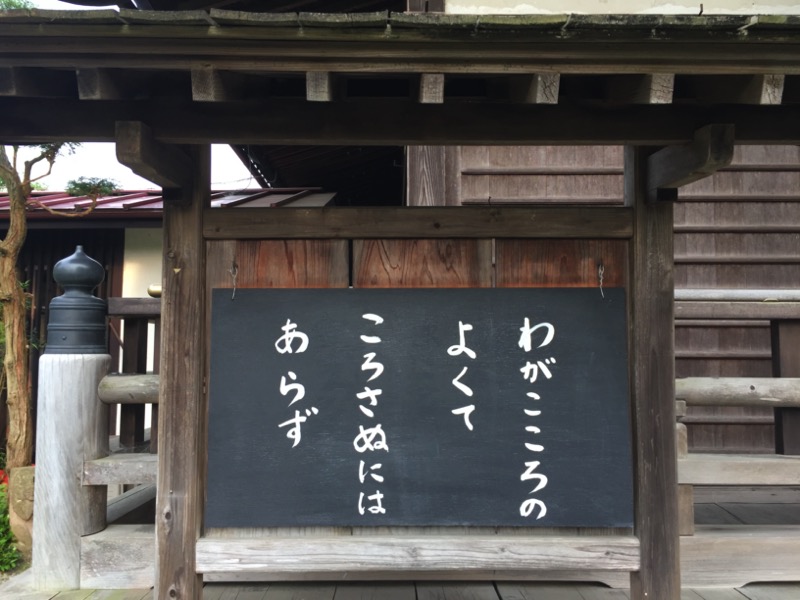 わがこころの
よくて
ころさぬには
あらず